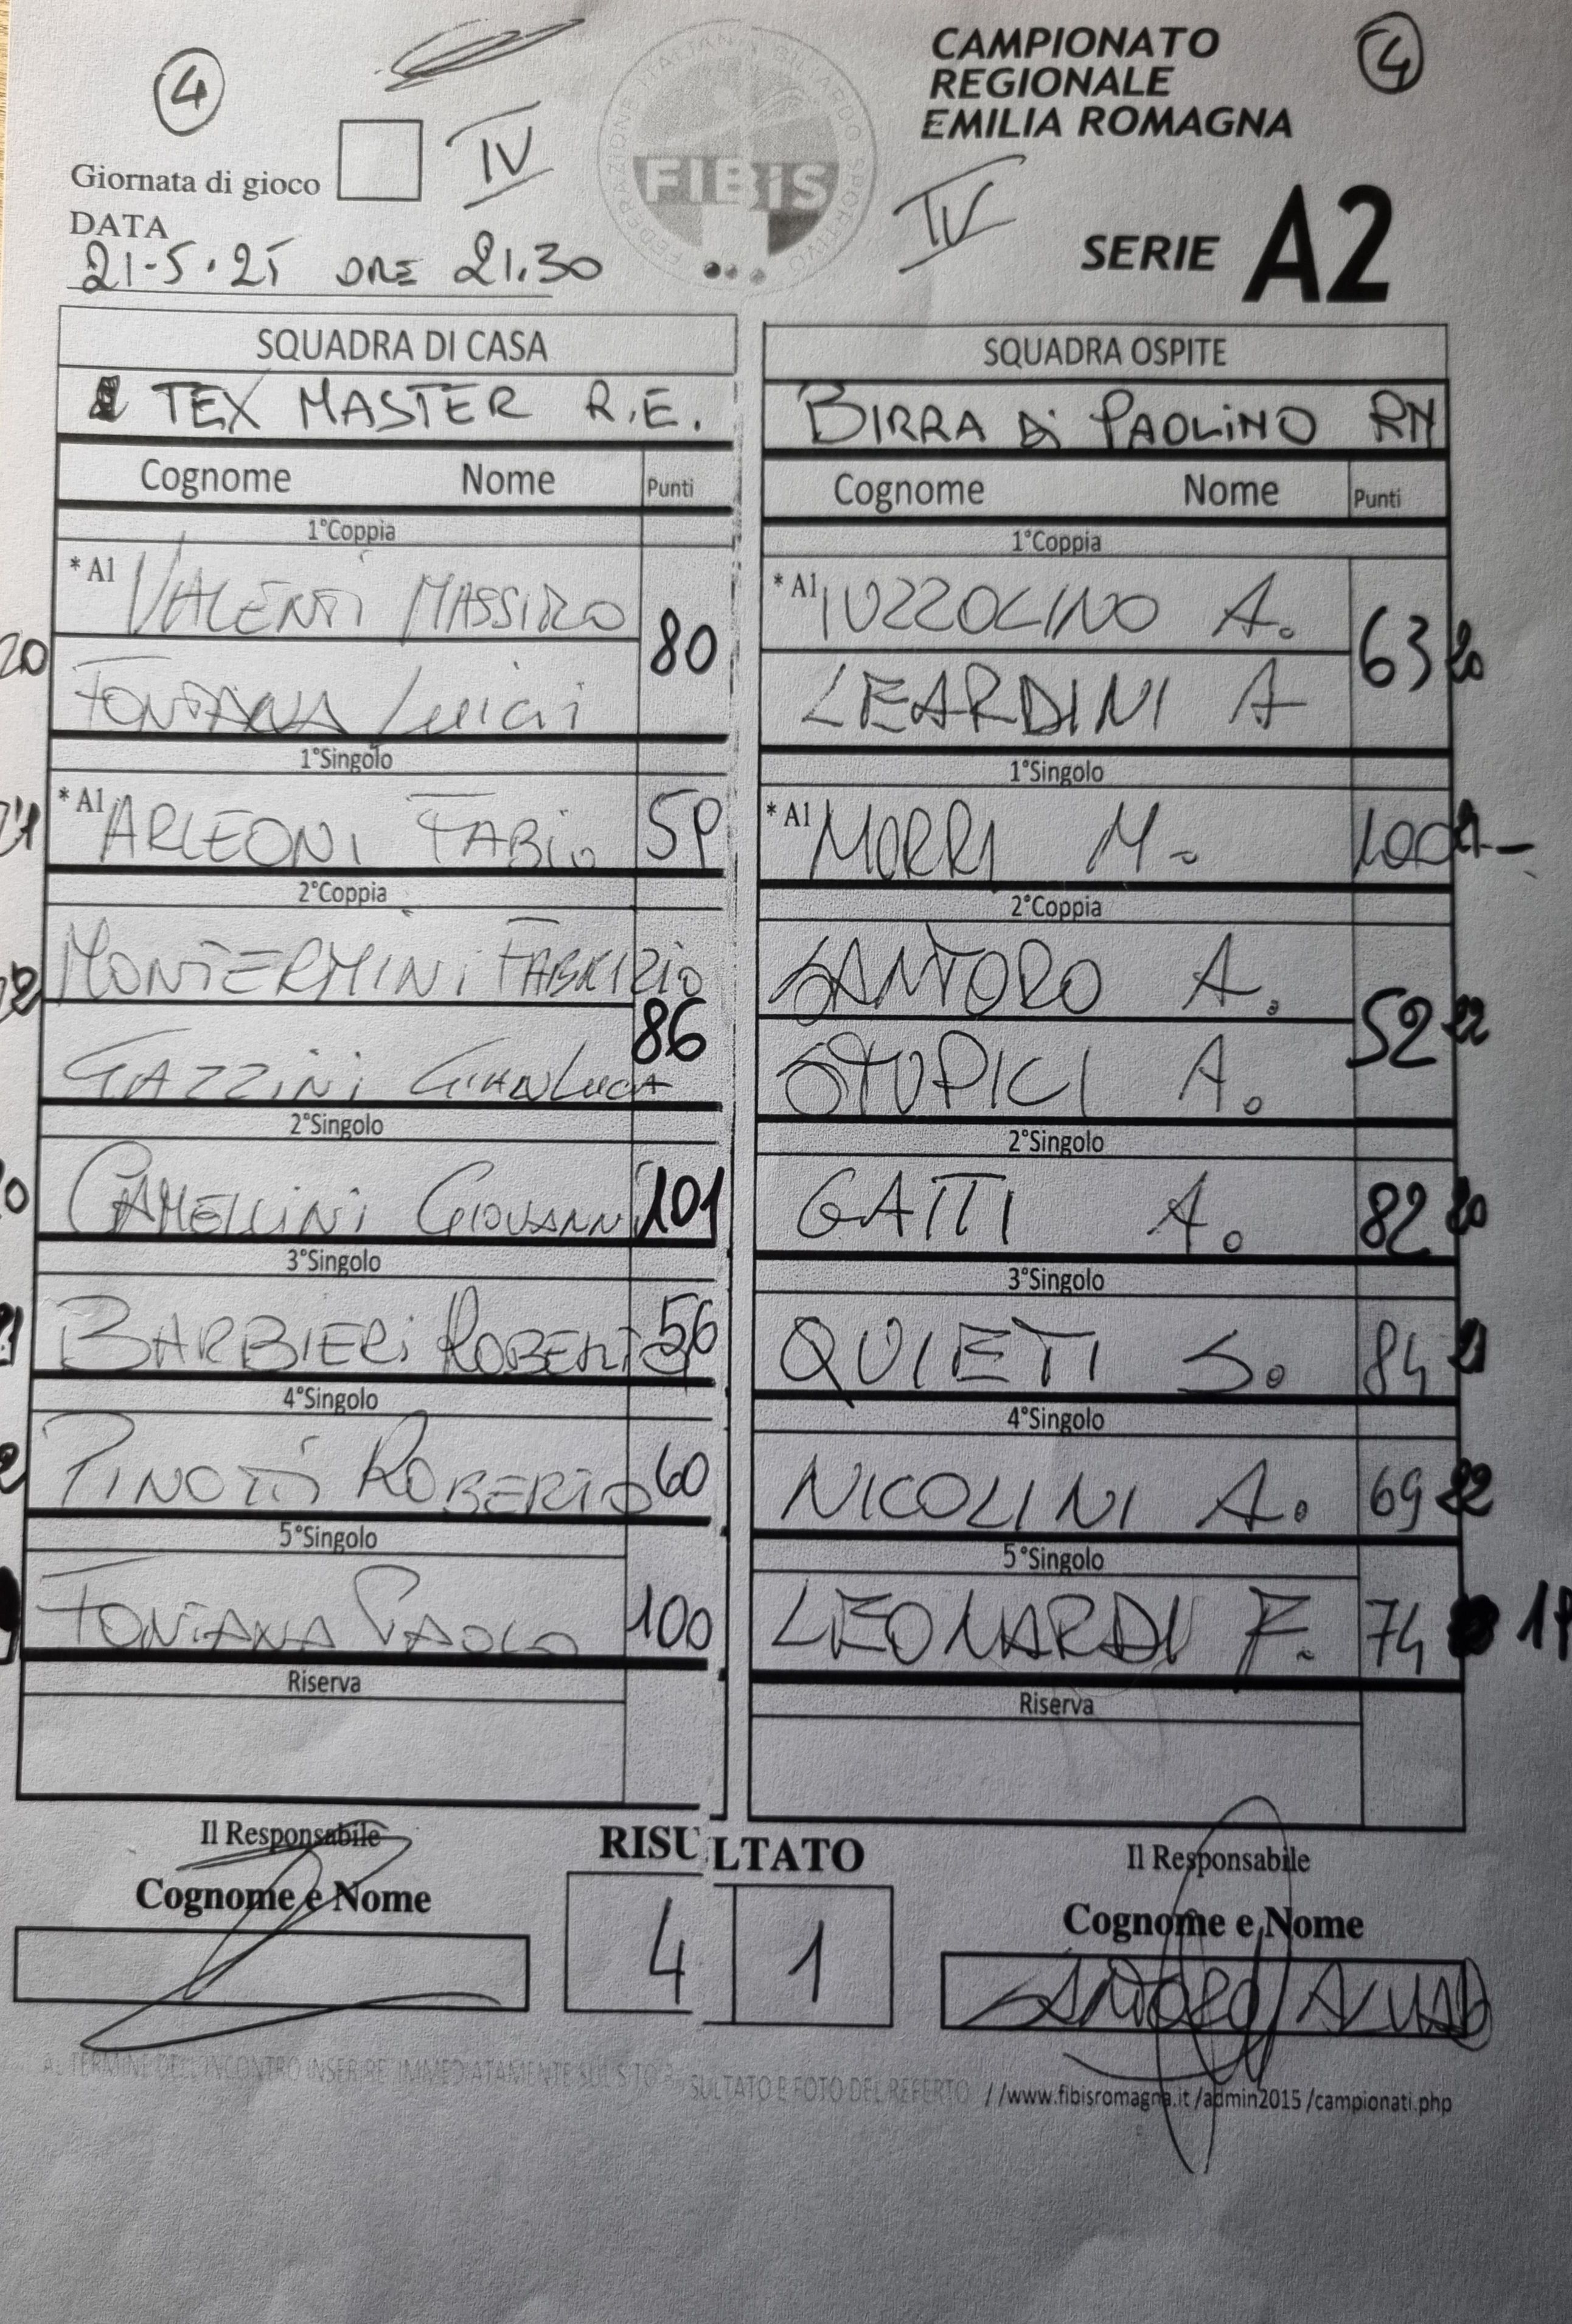 4
IV
Giornata di gioco
DATA
21-5.25 ORE 21.30
FEDERAZIONE ITALIANA BILIARDO SPORTIVO
FIBIS
CAMPIONATO
REGIONALE
EMILIA ROMAGNA
4
IV
SERIE A2
SQUADRA DI CASA
TEX MASTER R.E.
Cognome Nome Punti
1°Coppia
*A1 VALENTI MASSIMO
80
20
FONTANA LUIGI
1°Singolo
*A1 ARLEONI FABIO 59
21
2°Coppia
MONTERMINI FABRIZIO
86
GAZZINI GIANLUCA
2°Singolo
CAMELLINI GIOVANNI 101
3°Singolo
BARBIERI ROBERTO 56
4°Singolo
PINOTTI ROBERTO 60
5°Singolo
FONTANA PAOLO 100
Riserva
SQUADRA OSPITE
BIRRA Di PAOLINO RN
Cognome Nome Punti
1°Coppia
*A1 IUZZOLINO A.
63 20
LEARDINI A
1°Singolo
*A1 MORRI M. 100
2°Coppia
SANTORO A.
52 22
STUPICI A.
2°Singolo
GATTI A. 82 20
3°Singolo
QUIETI S. 84 21
4°Singolo
NICOLINI A. 69 22
5°Singolo
LEONARDI F. 74 19
Riserva
Il Responsabile
Cognome e Nome
RISULTATO
4 1
Il Responsabile
Cognome e Nome
SANTORO
AL TERMINE DELL'INCONTRO INSERIRE IMMEDIATAMENTE SUL SITO SULTATO E FOTO DEL REFERTO //www.fibisromagna.it/admin2015/campionati.php